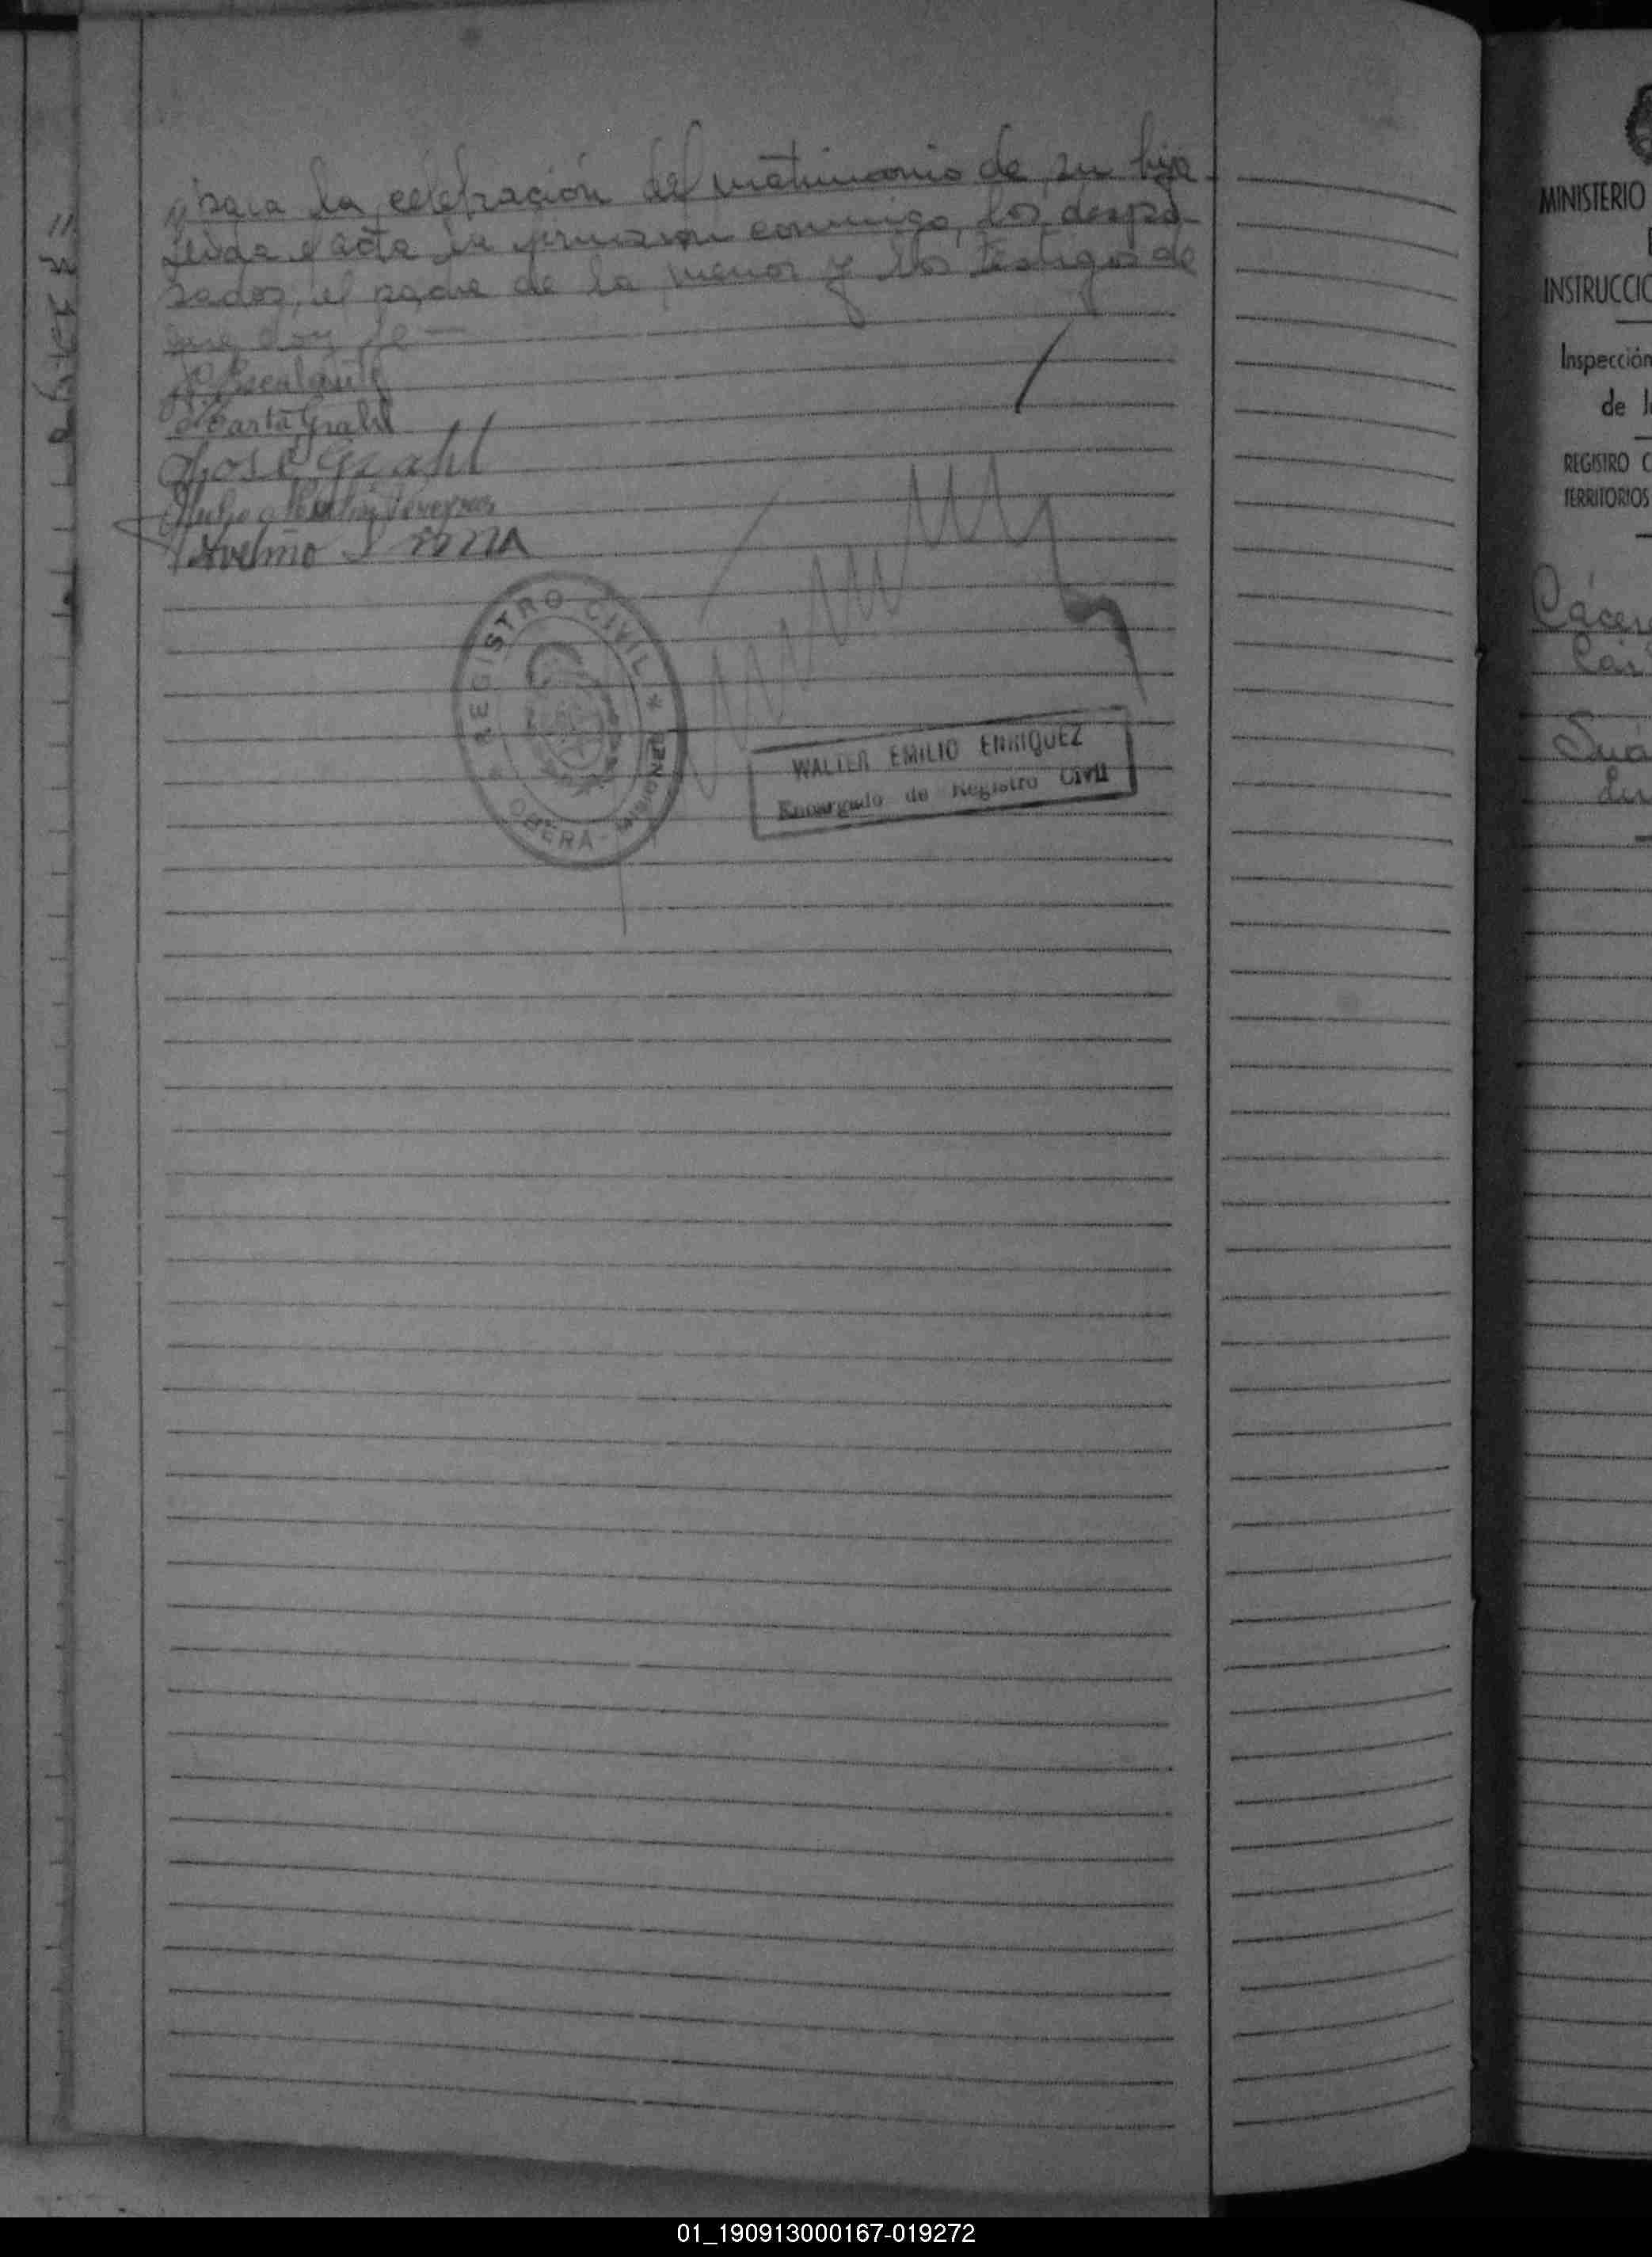 para la celebración del matrimonio de su hija.
Leída el acta la firmaron conmigo, los despo-
sados, el padre de la menor y los testigos de
que doy fe —
Escalante
Marta Grahl
José Grahl
Avelino
REGISTRO CIVIL * OBERA - MISIONES *
WALTER EMILIO ENRIQUEZ
Encargado de Registro Civil
MINISTERIO
INSTRUCCIO
Inspección
de
REGISTRO C
TERRITORIOS
Cácere
01_190913000167-019272